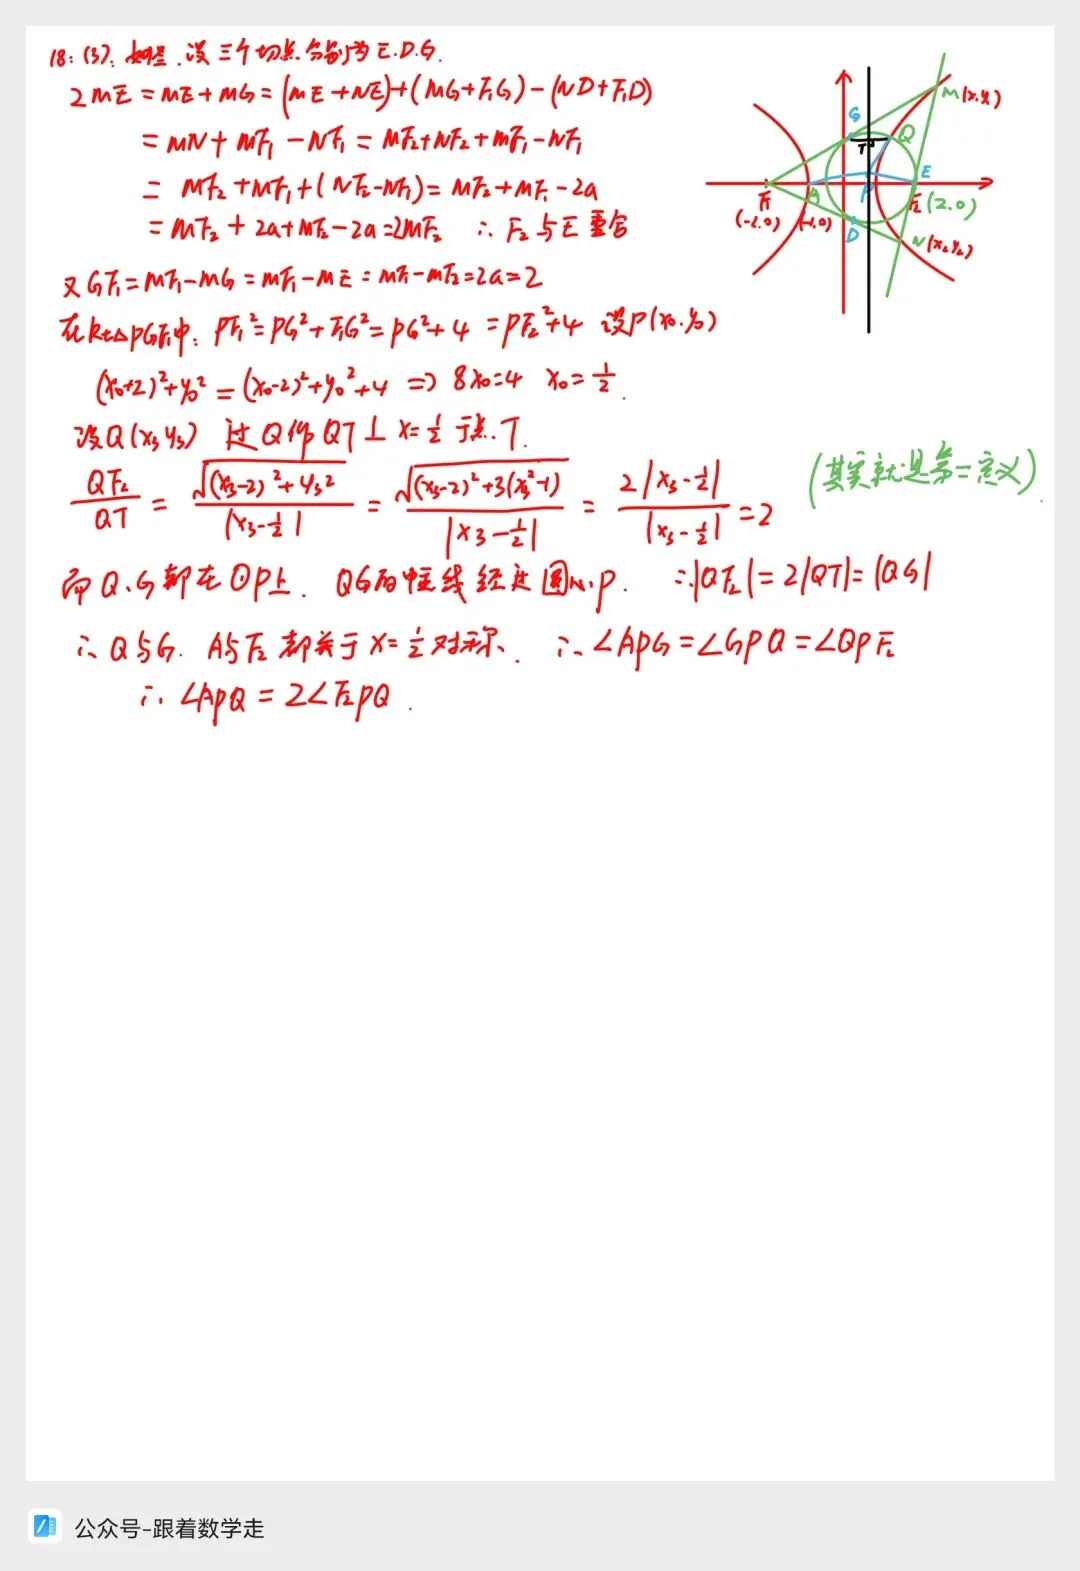 18: (3). 如图. 设三个切点分别为 E. D. G.
2ME = ME + MG = (ME + NE) + (MG + F₁G) − (ND + F₁D)
= MN + MF₁ − NF₁ = MF₂ + NF₂ + MF₁ − NF₁
= MF₂ + MF₁ + (NF₂ − NF₁) = MF₂ + MF₁ − 2a
= MF₂ + 2a + MF₂ − 2a = 2MF₂ ∴ F₂与E重合
又 GF₁ = MF₁ − MG = MF₁ − ME = MF₁ − MF₂ = 2a = 2
在Rt△PGF₁中. PF₁² = PG² + F₁G² = PG² + 4 = PF₂² + 4 设P(x₀.y₀)
(x₀+2)² + y₀² = (x₀−2)² + y₀² + 4 ⇒ 8x₀ = 4 x₀ = 1/2.
设Q(x₃ y₃) 过Q作QT⊥x=1/2于点.T.
QF₂/QT = √((x₃−2)² + y₃²)/|x₃−1/2| = √((x₃−2)² + 3(x₃²−1))/|x₃−1/2| = 2|x₃−1/2|/|x₃−1/2| = 2
(其实就是第二定义).
而Q.G都在⊙P上. QG的中垂线经过圆心P. ∴|QF₂| = 2|QT| = |QG|
∴Q与G. A与F₂都关于x=1/2对称. ∴∠APG = ∠GPQ = ∠QPF₂
∴∠APQ = 2∠F₂PQ.
M(x₁.y₁)
G
Q
T
E
P
A
F₁
(-2.0)
(-1.0)
D
F₂ (2.0)
N(x₂ y₂)
公众号-跟着数学走